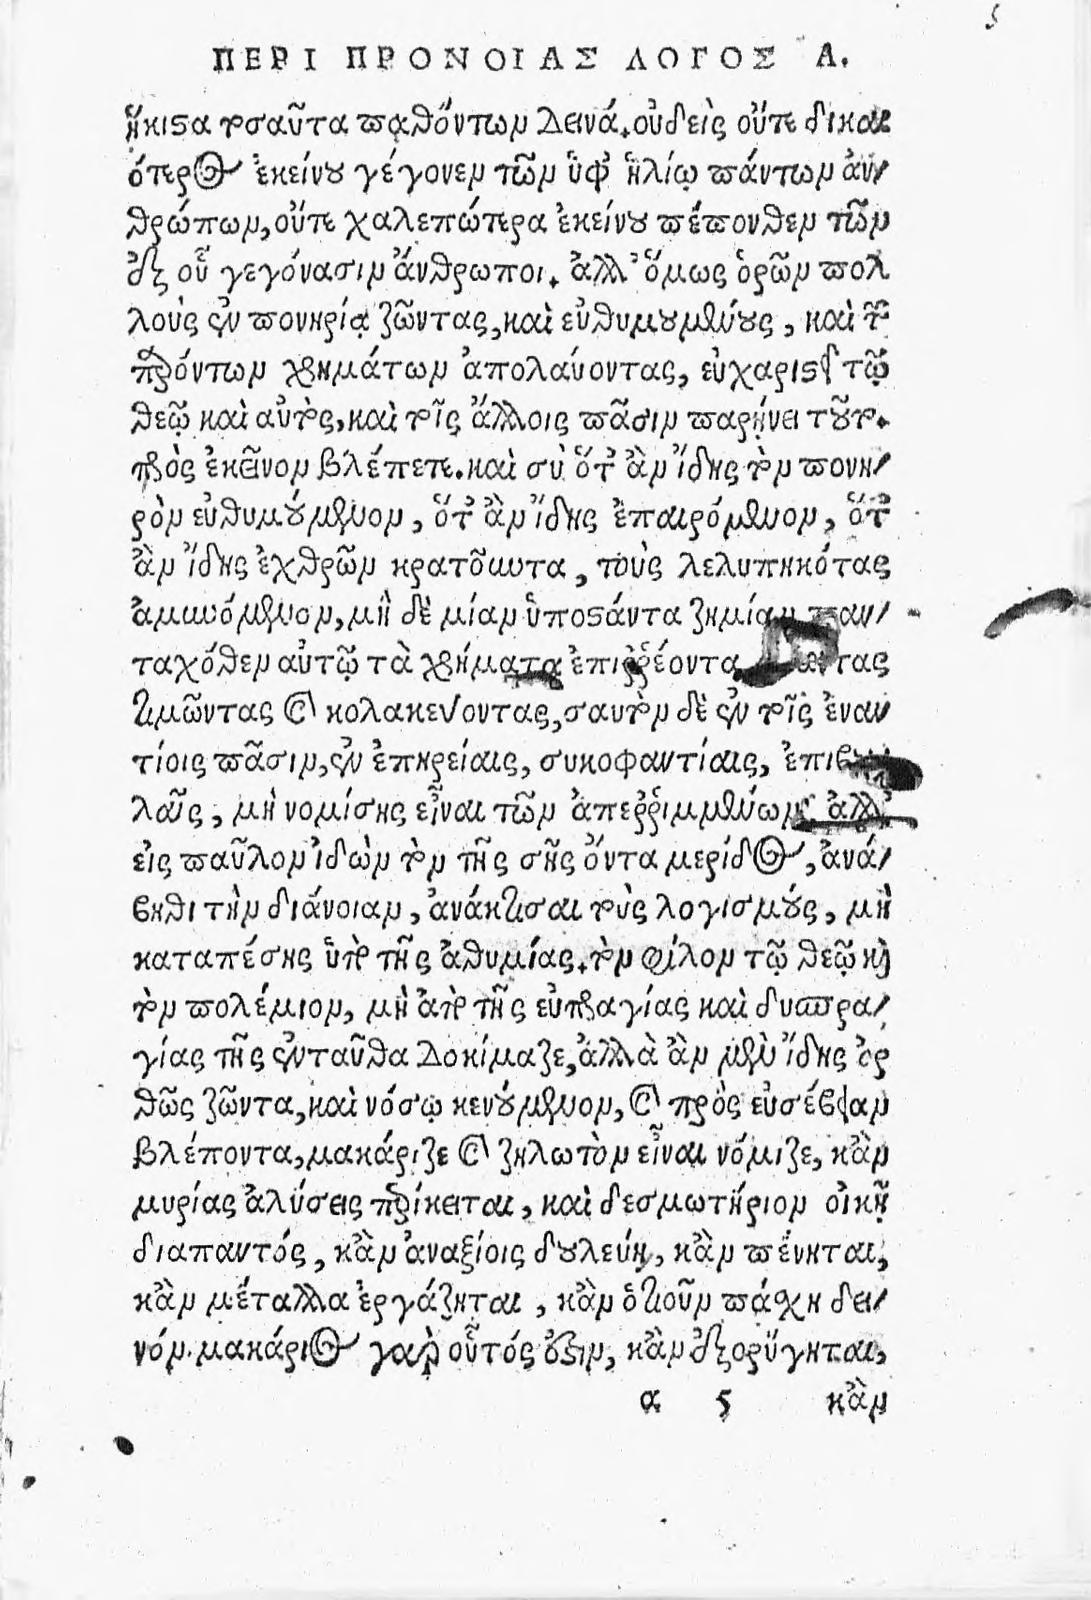 5
ΠΕΡΙ ΠΡΟΝΟΙΑΣ ΛΟΓΟΣ Α.
ἥκιστα τοσαῦτα παθόντων δεινά. οὐδεὶς οὔτε δικαι
ότερος ἐκείνου γέγονεν τῶν ὑφ' ἡλίῳ πάντων ἀν/
θρώπων, οὔτε χαλεπώτερα ἐκείνου πέπονθεν τῶν
ἐξ οὗ γεγόνασιν ἄνθρωποι. ἀλλ' ὅμως ὁρῶν πολ
λοὺς ἐν πονηρίᾳ ζῶντας, καὶ εὐθυμουμένους, καὶ τῶν
παρόντων χρημάτων ἀπολαύοντας, εὐχαριστεῖ τῷ
θεῷ καὶ αὐτὸς, καὶ τοῖς ἄλλοις πᾶσιν παρῄνει τοῦτο.
πρὸς ἐκεῖνον βλέπετε. καὶ σὺ ὅταν ἴδῃς τὸν πονη/
ρὸν εὐθυμούμενον, ὅταν ἴδῃς ἐπαιρόμενον, ὅτ
ἂν ἴδῃς ἐχθρῶν κρατοῦντα, τοὺς λελυπηκότας
ἀμυνόμενον, μηδὲ μίαν ὑποστάντα ζημίαν παν/
ταχόθεν αὐτῷ τὰ χρήματα ἐπιρρέοντα, πάντας
τιμῶντας καὶ κολακεύοντας, σαυτὸν δὲ ἐν τοῖς ἐναν
τίοις πᾶσιν, ἐν ἐπηρείαις, συκοφαντίαις, ἐπιβου
λαῖς, μὴ νομίσῃς εἶναι τῶν ἀπερριμμένων, ἀλλ'
εἰς παῦλον ἰδὼν τὸν τῆς σῆς ὄντα μερίδος, ἀνά/
βηθι τὴν διάνοιαν, ἀνάκτισαι τοὺς λογισμούς, μὴ
καταπέσῃς ὑπὸ τῆς ἀθυμίας. τὸν φίλον τῷ θεῷ καὶ
τὸν πολέμιον, μὴ ἀπὸ τῆς εὐπραγίας καὶ δυσπρα/
γίας τῆς ἐνταῦθα δοκίμαζε, ἀλλὰ ἂν μὲν ἴδῃς ὀρ
θῶς ζῶντα, καὶ νόσῳ κενούμενον, καὶ πρὸς εὐσέβειαν
βλέποντα, μακάριζε καὶ ζηλωτὸν εἶναι νόμιζε, κἂν
μυρίας ἁλύσεις περίκειται, καὶ δεσμωτήριον οἰκῇ
διαπαντός, κἂν ἀναξίοις δουλεύῃ, κἂν πένηται,
κἂν μέταλλα ἐργάζηται, κἂν ὁτιοῦν πάσχῃ δει/
νόν. μακάριος γὰρ οὗτός ἐστιν, κἂν ἐξορύγηται,
α 5 κἂν